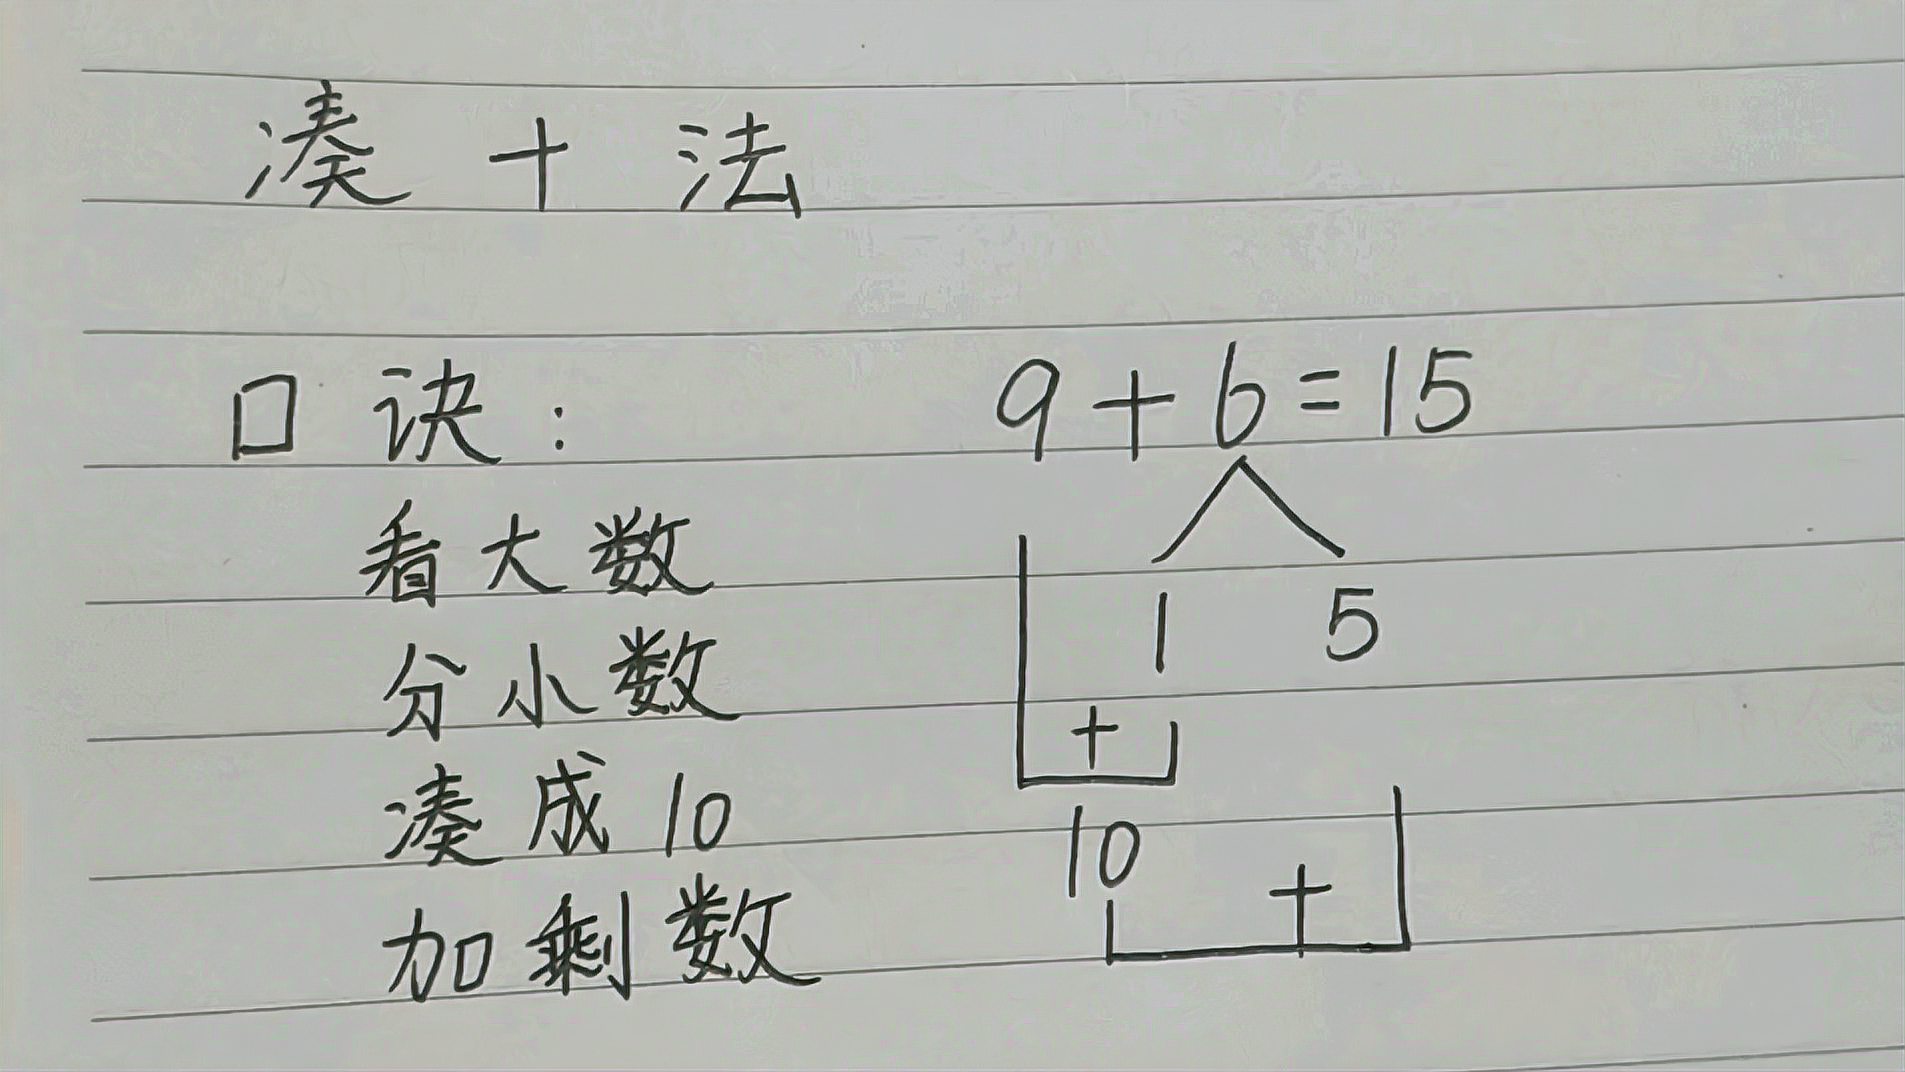 凑十法
口诀： 9+6=15
看大数
分小数 1 5
+
凑成10 10
加剩数 +